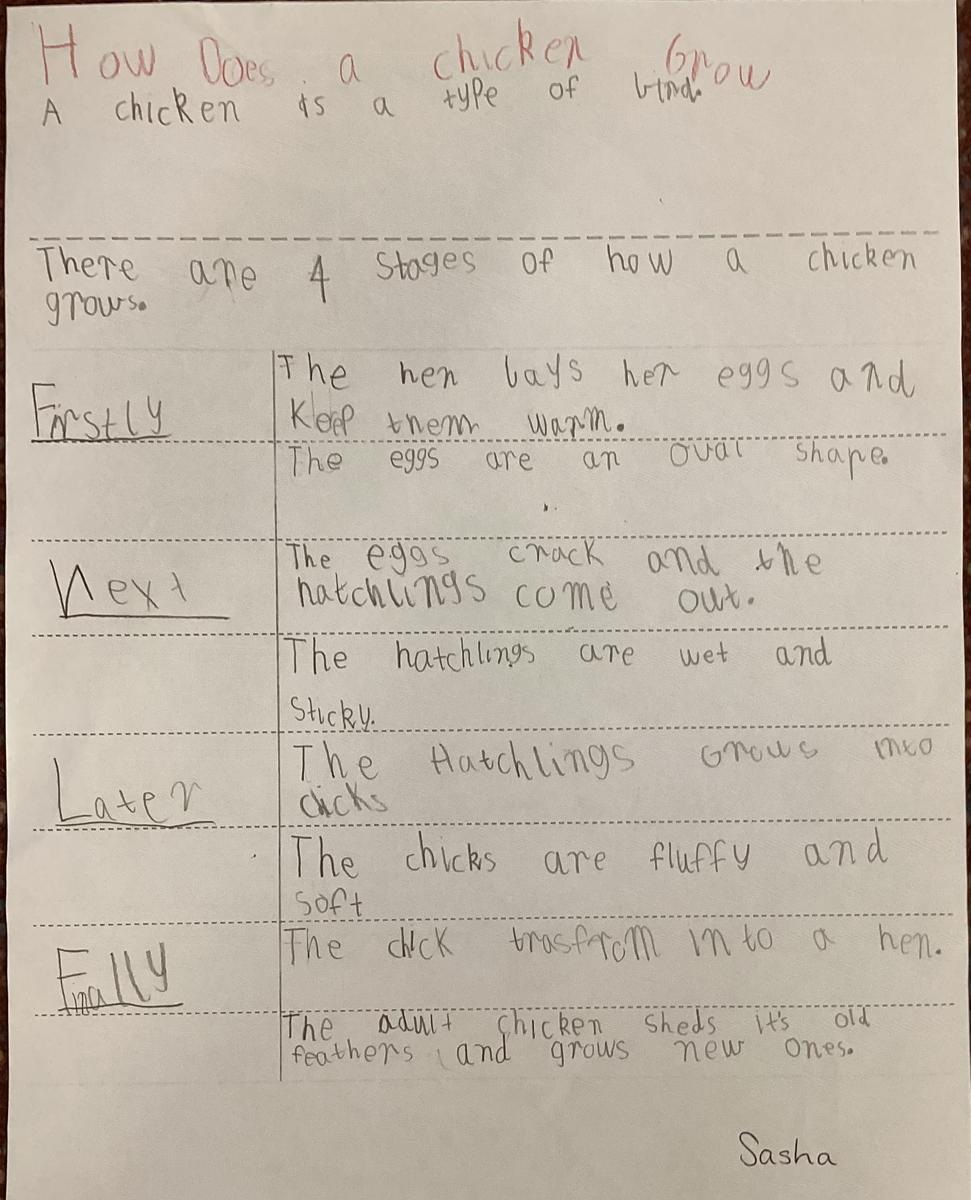 How Does a chicken Grow
A chicken is a type of bird.
There are 4 stages of how a chicken
grows.
The hen lays her eggs and
Firstly
Keep them warm.
The eggs are an oval shape.
The eggs crack and the
Next
hatchlings come out.
The hatchlings are wet and
Sticky.
The Hatchlings Grows into
Later
chicks
The chicks are fluffy and
Soft
The chick trasfrom in to a hen.
Finally
The adult chicken sheds it's old
feathers and grows new ones.
Sasha